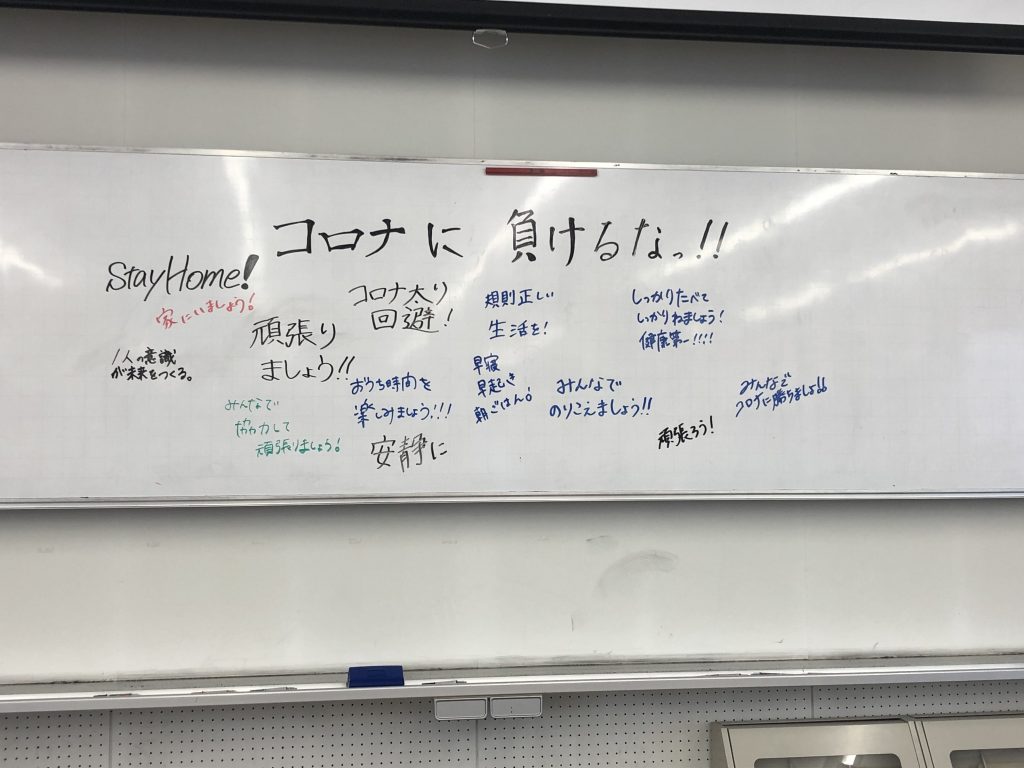 コロナに 負けるなっ!!
StayHome!
家にいましょう!
1人の意識
が未来をつくる。
頑張り
ましょう!!
みんなで
協力して
頑張りましょう!
コロナ太り
回避!
おうち時間を
楽しみましょう!!!
安静に
規則正しい
生活を!
早寝
早起き
朝ごはん!
みんなで
のりこえましょう!!
しっかりたべて
いっかりねましょう!
健康第一!!!!
頑張ろう!
みんなで
コロナに勝ちましょ!!